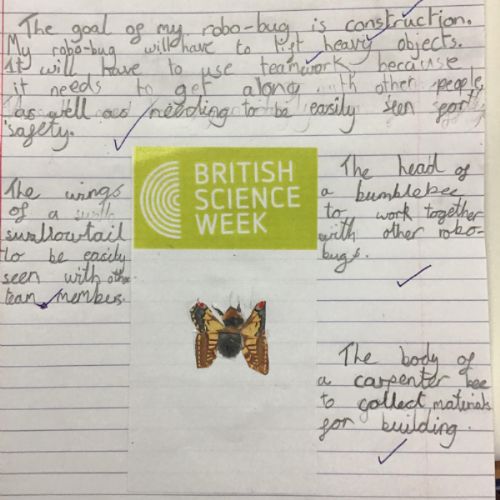 The goal of my robo-bug is construction.
My robo-bug will have to lift heavy objects.
It will have to use teamwork because
it needs to get along with other people,
as well as needing to be easily seen for
safety.
The wings
of a
swallowtail
to be easily
seen with other
team members.
BRITISH
SCIENCE
WEEK
The head of
a bumblebee
to work together
with other robo-
bugs.
The body of
a carpenter bee
to collect materials
for building.